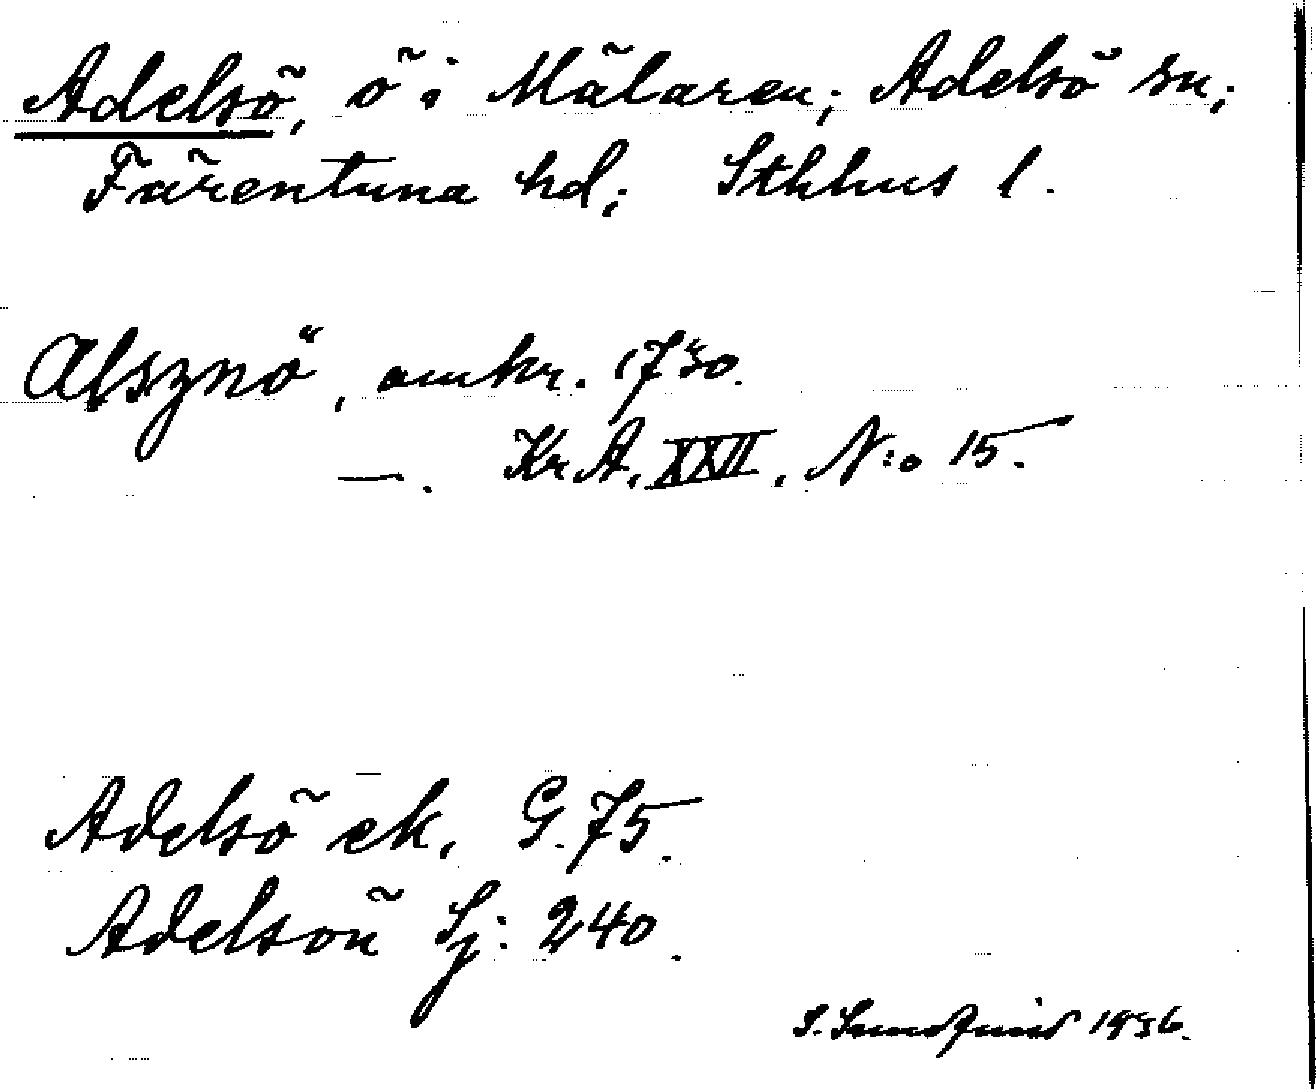 Adelsö, ö i Mälaren; Adelsö sn;
Färentuna hd; Sthlms l.
Alsznö, omkr. 1730.
—. Kr. A. XXII, N:o 15.
Adelsö ek. G. 75.
Adelsön Sj: 240.
S. Sundquist 1936.